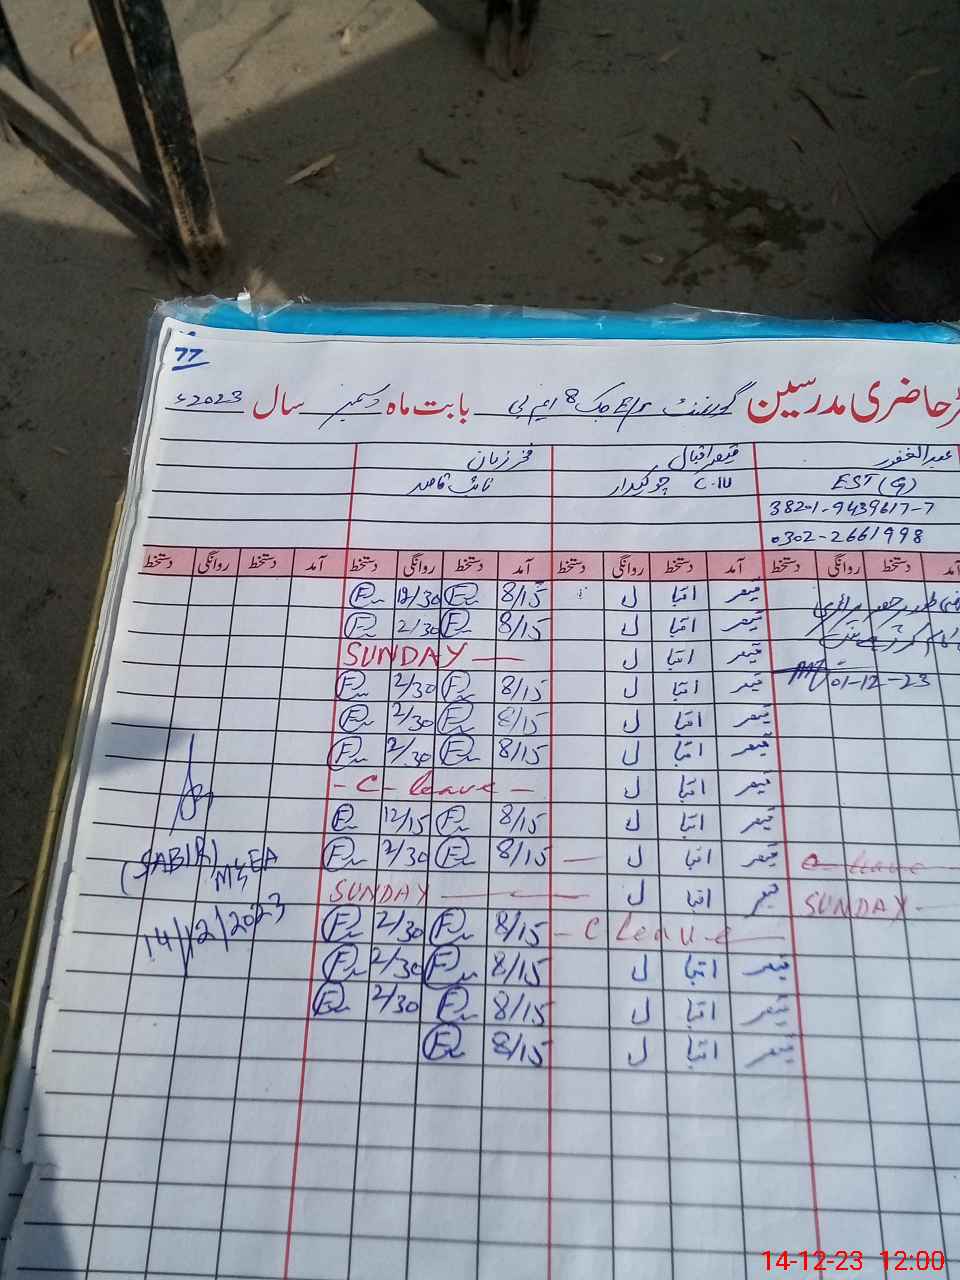 77
حاضری مدرسین گورنمنٹ E/S چک 8 ایم بی بابت ماہ دسمبر سال 2023ء
عبدالغفور قیصر اقبال فخر زمان
EST (G) C-IV چوکیدار نائب قاصد
38201-9439617-7
0302-2661998
آمد دستخط روانگی دستخط آمد دستخط روانگی دستخط آمد دستخط روانگی دستخط آمد دستخط روانگی دستخط
قیصر اقبا ل 8/15 12/30
قیصر اقبا ل 8/15 2/30
قیصر اقبا ل SUNDAY
01-12-23 قیصر اقبا ل 8/15 2/30
قیصر اقبا ل 8/15 2/30
قیصر اقبا ل 8/15 2/30
قیصر اقبا ل - C - leave -
قیصر اقبا ل 8/15 12/15
C leave قیصر اقبا ل 8/15 2/30
SUNDAY قیصر اقبا ل SUNDAY
- C leave 8/15 2/30
قیصر اقبا ل 8/15 2/30
قیصر اقبا ل 8/15 2/30
قیصر اقبا ل 8/15
(SABIR)
MEA
14/12/2023
14-12-23 12:00